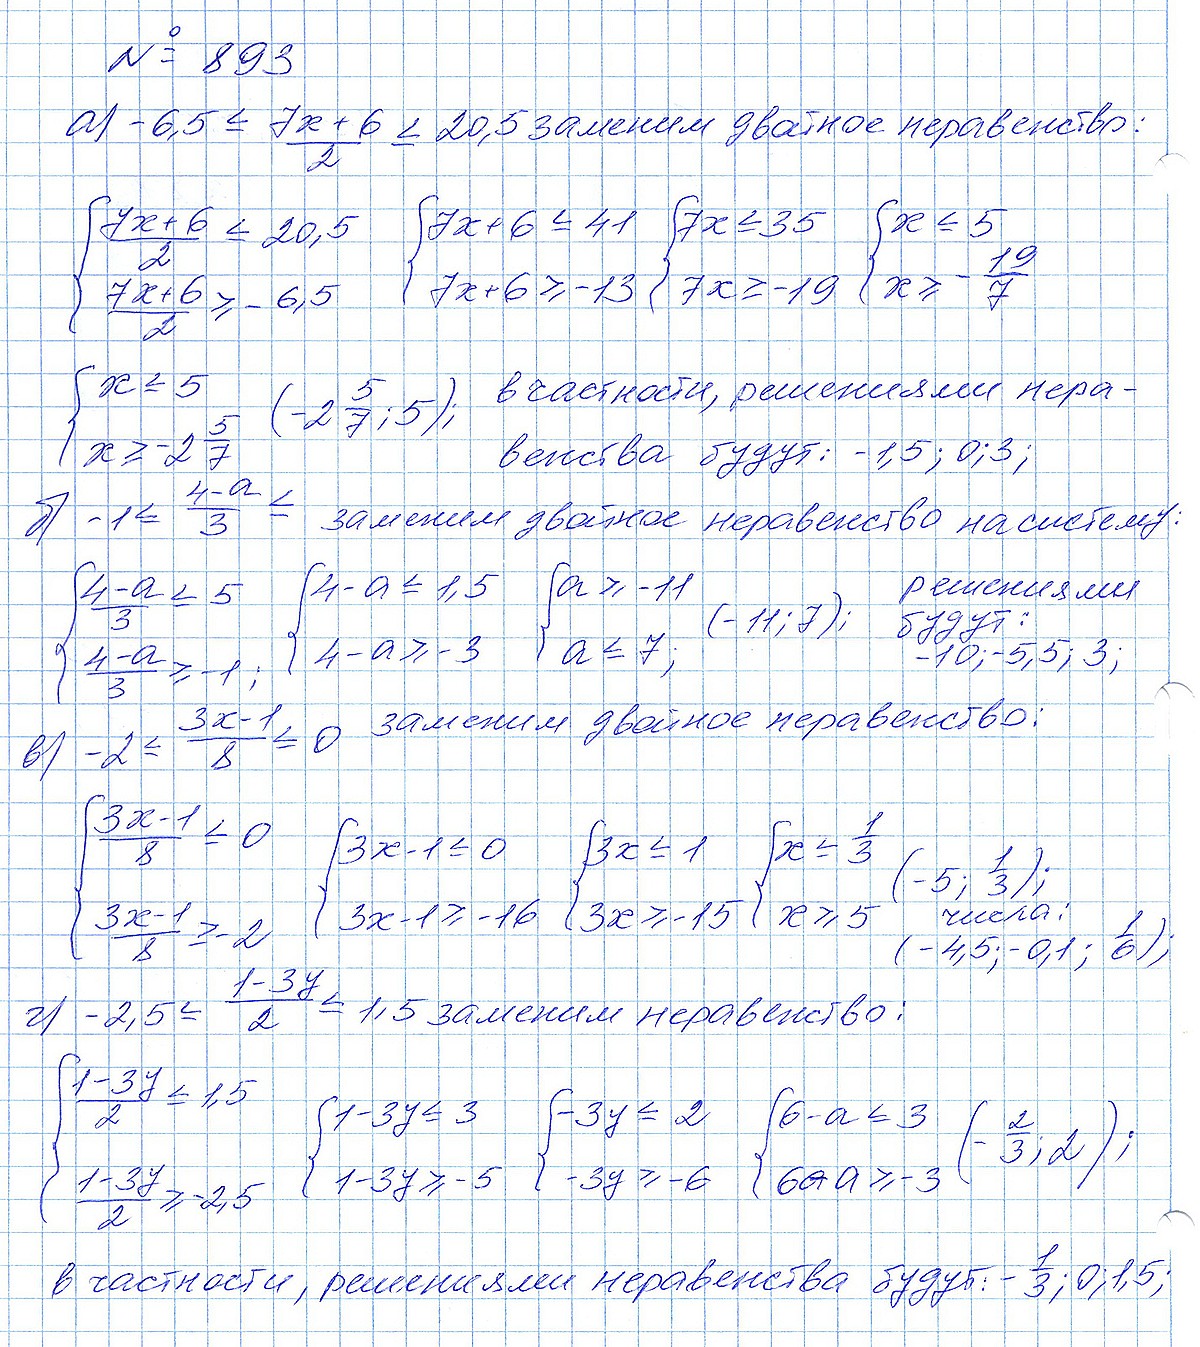 № 893
а) -6,5 ≤ (7x+6)/2 ≤ 20,5 заменим двойное неравенство:
{ (7x+6)/2 ≤ 20,5 { 7x+6 ≤ 41 { 7x ≤ 35 { x ≤ 5
(7x+6)/2 ≥ -6,5 7x+6 ≥ -13 7x ≥ -19 x ≥ -19/7
{ x ≤ 5 (-2 5/7; 5); в частности, решениями нера-
x ≥ -2 5/7 венства будут: -1,5; 0; 3;
б) -1 ≤ (4-a)/3 ≤ заменим двойное неравенство на систему:
{ (4-a)/3 ≤ 5 { 4-a ≤ 1,5 { a ≥ -11 (-11; 7); решениями
будут:
(4-a)/3 ≥ -1; 4-a ≥ -3 a ≤ 7; -10; -5,5; 3;
в) -2 ≤ (3x-1)/8 ≤ 0 заменим двойное неравенство:
{ (3x-1)/8 ≤ 0 { 3x-1 ≤ 0 { 3x ≤ 1 { x ≤ 1/3 (-5; 1/3);
(3x-1)/8 ≥ -2 3x-1 ≥ -16 3x ≥ -15 x ≥ 5 числа:
(-4,5; -0,1; 1/6);
г) -2,5 ≤ (1-3y)/2 ≤ 1,5 заменим неравенство:
{ (1-3y)/2 ≤ 1,5 { 1-3y ≤ 3 { -3y ≤ 2 { 6-a ≤ 3 (-2/3; 2);
(1-3y)/2 ≥ -2,5 1-3y ≥ -5 -3y ≥ -6 6-a ≥ -3
в частности, решениями неравенства будут: -1/3; 0; 1,5;